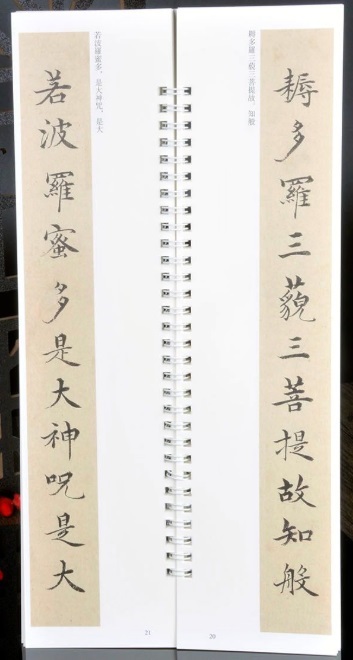 耨多羅三藐三菩提故知般
耨多羅三藐三菩提故，知般
20
若波羅蜜多是大神咒是大
若波羅蜜多，是大神咒，是大
21